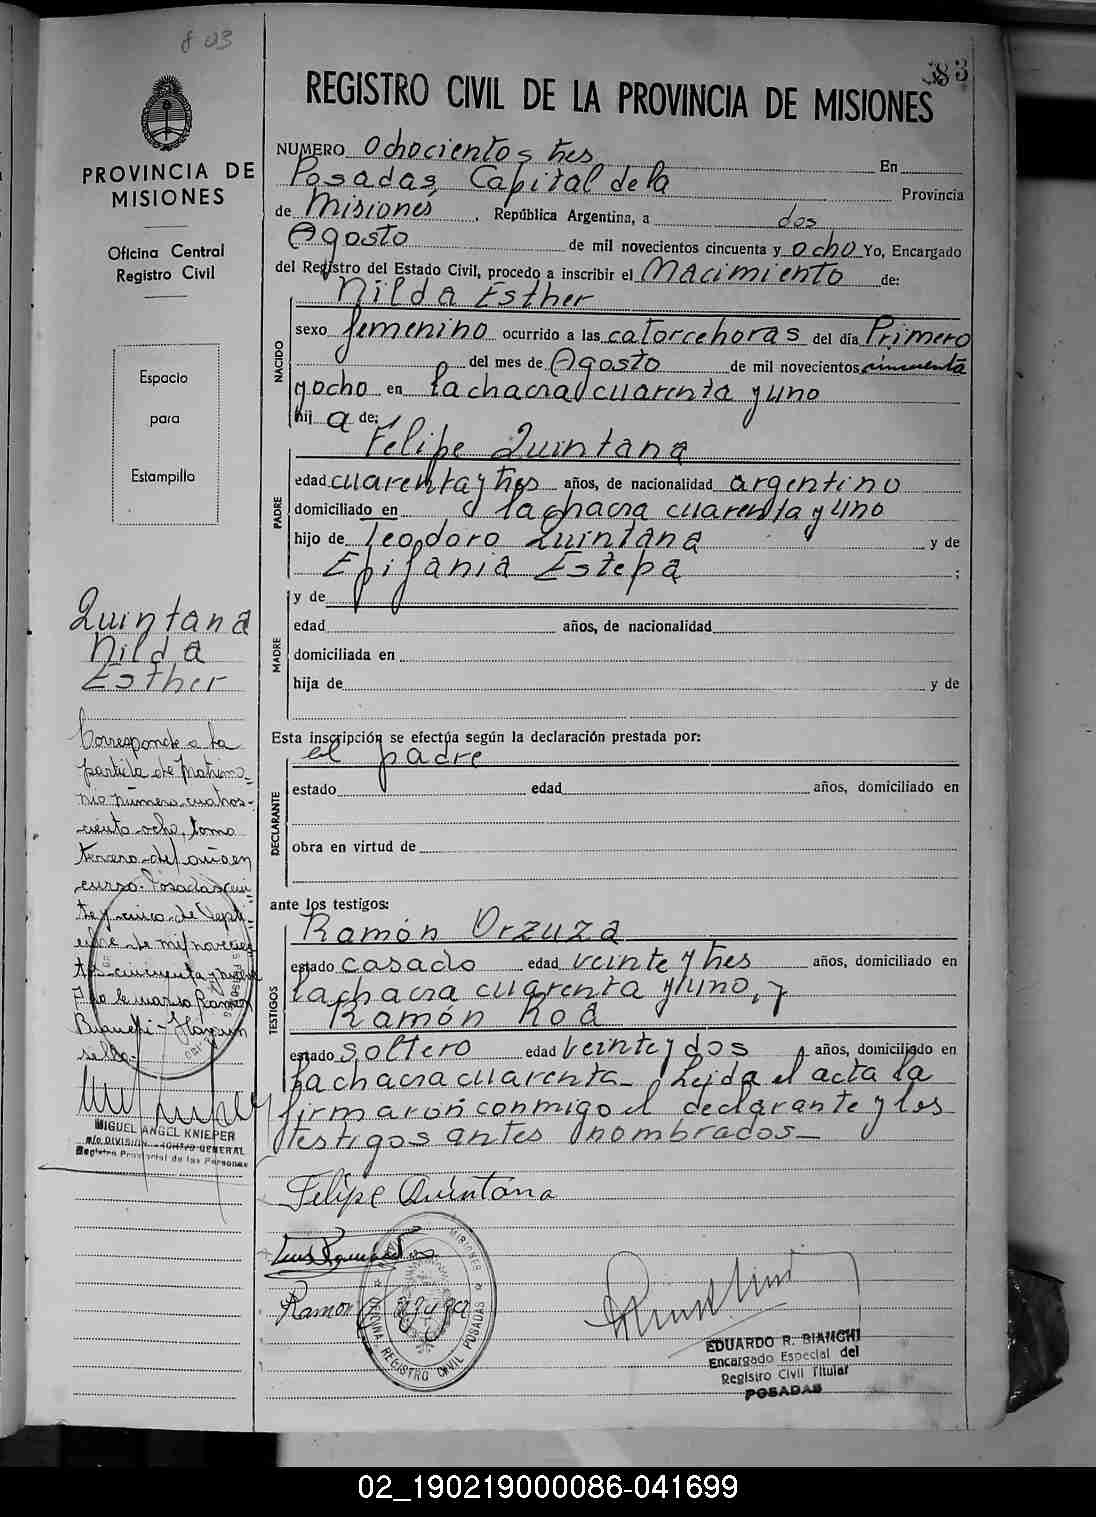 803
383
REGISTRO CIVIL DE LA PROVINCIA DE MISIONES
PROVINCIA DE
MISIONES
Oficina Central
Registro Civil
Espacio
para
Estampillo
NUMERO Ochocientos tres En
Posadas, Capital de la Provincia
de Misiones, República Argentina, a dos
Agosto de mil novecientos cincuenta y ocho Yo, Encargado
del Registro del Estado Civil, procedo a inscribir el Nacimiento de:
NACIDO
Nilda Esther
sexo femenino ocurrido a las catorce horas del día Primero
del mes de Agosto de mil novecientos cincuenta
y ocho en la chacra cuarenta y uno
hij a de:
PADRE
Felipe Quintana
edad cuarenta y tres años, de nacionalidad argentino
domiciliado en la chacra cuarenta y uno
hijo de Teodoro Quintana y de
Epifania Estepa ;
MADRE
y de
edad años, de nacionalidad
domiciliada en
hija de y de
Esta inscripción se efectúa según la declaración prestada por:
DECLARANTE
el padre
estado edad años, domiciliado en
obra en virtud de
ante los testigos:
TESTIGOS
Ramón Orzuza
estado casado edad veinte y tres años, domiciliado en
la chacra cuarenta y uno, y
Ramón Roa
estado soltero edad veinte y dos años, domiciliado en
la chacra cuarenta_ Leida el acta la
firmaron conmigo el declarante y los
testigos antes nombrados_
Felipe Quintana
Ramon
REGISTRO CIVIL POSADAS
MISIONES
EDUARDO R. BIANCHI
Encargado Especial del
Registro Civil Titular
POSADAS
Quintana
Nilda
Esther
Corresponde a la
partida de matrimo-
nio número cuatros-
ciento ocho, tomo
tercero del año en
curso. Posadas, vein
te y cinco de Septi-
embre de mil novecien
tos cincuenta y nueve
MIGUEL ANGEL KNIEPER
a/c DIVISION GENERAL
Registro Provincial de las Personas
02_190219000086-041699